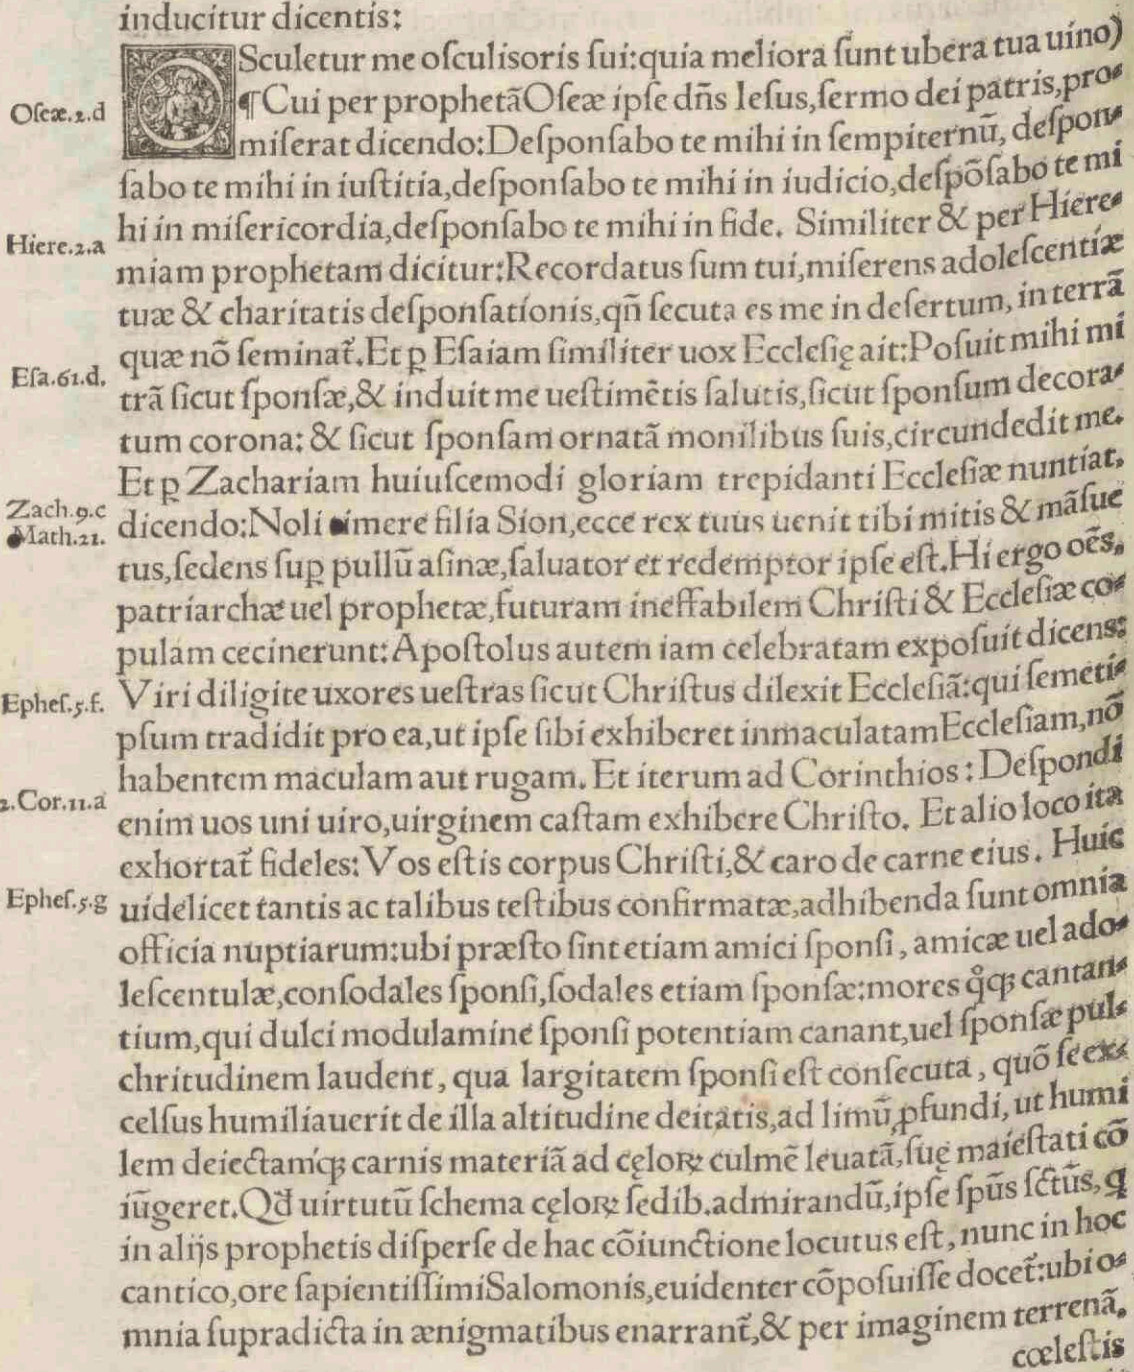 inducitur dicentis:
OSculetur me oſculisoris ſui:quia meliora ſunt ubera tua uino)
¶Cui per prophetãOſeæ ipſe dñs Ieſus,ſermo dei patris,pro-
Oſeæ.2.d
miſerat dicendo:Deſponſabo te mihi in ſempiternũ, deſpon-
ſabo te mihi in iuſtitia,deſponſabo te mihi in iudicio,deſpõſabo te mi
hi in miſericordia,deſponſabo te mihi in fide. Similiter & per Hiere-
Hiere.2.a
miam prophetam dicitur:Recordatus ſum tui,miſerens adoleſcentiæ
tuæ & charitatis deſponſationis,qñ ſecuta es me in deſertum, in terrã
quæ nõ ſeminat̃.Et ꝑ Eſaiam ſimiliter uox Eccleſię ait:Poſuit mihi mi
Eſa.61.d.
trã ſicut ſponſæ,& induit me ueſtimẽtis ſalutis,ſicut ſponſum decora-
tum corona: & ſicut ſponſam ornatã monilibus ſuis,circundedit me.
Et ꝑ Zachariam huiuſcemodi gloriam trepidanti Eccleſiæ nuntiat,
Zach.9.c
dicendo:Noli timere filia Sion,ecce rex tuus uenit tibi mitis & mãſue
Math.21.
tus,ſedens ſuꝑ pullũ aſinæ,ſaluator et redemptor ipſe eſt.Hi ergo oẽs,
patriarchæ uel prophetæ,futuram ineffabilem Chriſti & Eccleſiæ co-
pulam cecinerunt:Apoſtolus autem iam celebratam expoſuit dicens:
Viri diligite uxores ueſtras ſicut Chriſtus dilexit Eccleſiã:qui ſemeti-
Epheſ.5.f.
pſum tradidit pro ea,ut ipſe ſibi exhiberet inmaculatam Eccleſiam,nõ
habentem maculam aut rugam. Et iterum ad Corinthios: Deſpondi
2.Cor.11.a
enim uos uni uiro,uirginem caſtam exhibere Chriſto. Et alio loco ita
exhortat̃ fideles: Vos eſtis corpus Chriſti,& caro de carne eius. Huic
Epheſ.5.g
uidelicet tantis ac talibus teſtibus confirmatæ,adhibenda ſunt omnia
officia nuptiarum:ubi præſto ſint etiam amici ſponſi, amicæ uel ado-
leſcentulæ,conſodales ſponſi,ſodales etiam ſponſæ:mores qͦqꝫ cantan-
tium,qui dulci modulamine ſponſi potentiam canant,uel ſponſæ pul-
chritudinem laudent, qua largitatem ſponſi eſt conſecuta, quõ ſe ex-
celſus humiliauerit de illa altitudine deitatis,ad limũ ꝓfundi, ut humi
lem deiectamqꝫ carnis materiã ad cęloꝝ culmẽ leuatã,ſuę maieſtati cõ
iũgeret.Qđ uirtutũ ſchema cęloꝝ ſedib.admirandũ,ipſe ſpũs ſctũs,q
in alijs prophetis diſperſe de hac cõiunctione locutus eſt, nunc in hoc
cantico,ore ſapientiſſimi Salomonis,euidenter cõpoſuiſſe docet̃:ubi o-
mnia ſupradicta in ænigmatibus enarrant̃,& per imaginem terrenã,
cœleſtis